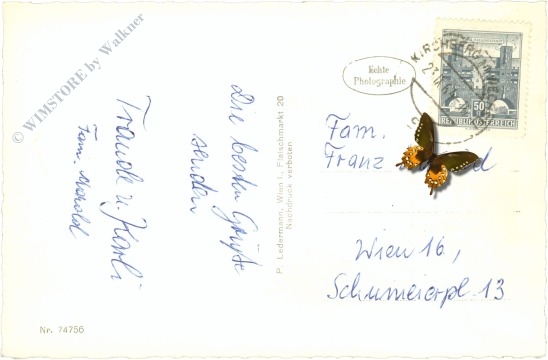 © WIMSTORE by Walkner
Die besten Grüße
senden
Traude u. Karli
Fam.
Nr. 74756
P. Ledermann, Wien I., Fleischmarkt 20
Nachdruck verboten
Echte
Photographie
KIRCHBERG
50
REPUBLIK ÖSTERREICH
Fam.
Franz
Wien 16,
Schumeierpl. 13